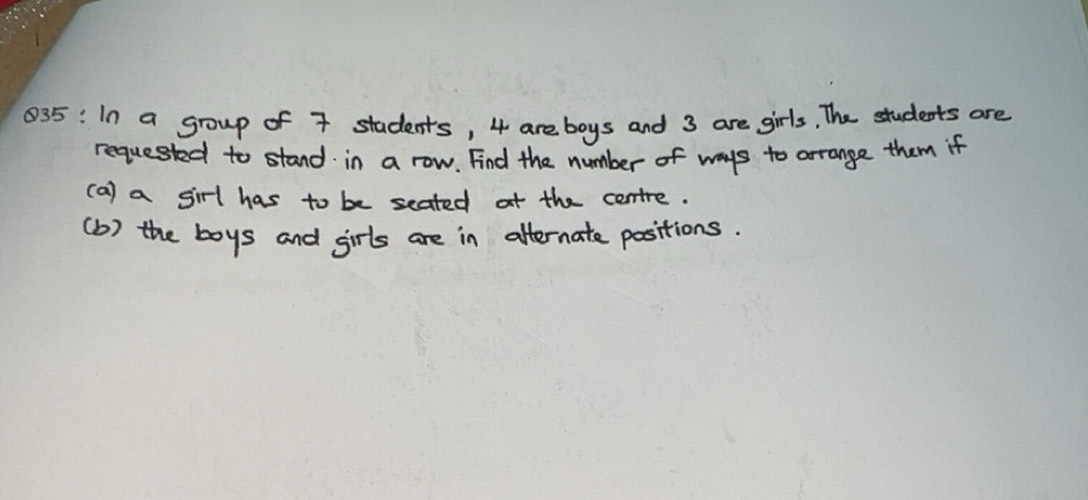 Q35 : In a group of 7 students, 4 are boys and 3 are girls. The students are
requested to stand in a row. Find the number of ways to arrange them if
(a) a girl has to be seated at the centre.
(b) the boys and girls are in alternate positions.